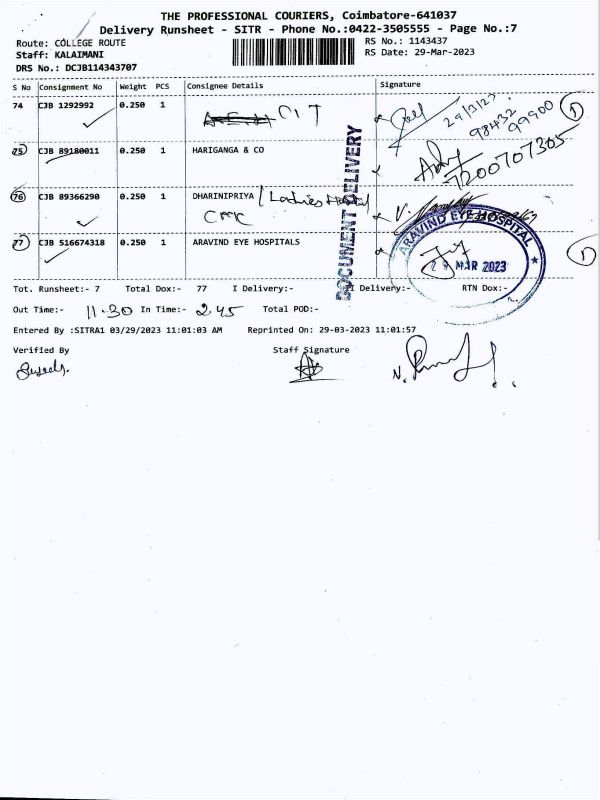 THE PROFESSIONAL COURIERS, Coimbatore-641037
Delivery Runsheet - SITR - Phone No.:0422-3505555 - Page No.:7
Route: COLLEGE ROUTE
RS No.: 1143437
Staff: KALAIMANI
RS Date: 29-Mar-2023
DRS No.: DCJB114343707
S No Consignment No Weight PCS Consignee Details Signature
74 CJB 1292992 0.250 1 CIT
29/3/23
98432
99900
1
75 CJB 89180011 0.250 1 HARIGANGA & CO
7200707305
76 CJB 89366290 0.250 1 DHARINIPRIYA / Ladies Hostel
77 CJB 516674318 0.250 1 ARAVIND EYE HOSPITALS
1
DOCUMENT DELIVERY
ARAVIND EYE HOSPITAL
29 MAR 2023
Tot. Runsheet:- 7 Total Dox:- 77 I Delivery:- II Delivery:- RTN Dox:-
Out Time:- 11.30 In Time:- 2.45 Total POD:-
Entered By :SITRA1 03/29/2023 11:01:03 AM Reprinted On: 29-03-2023 11:01:57
Verified By Staff Signature